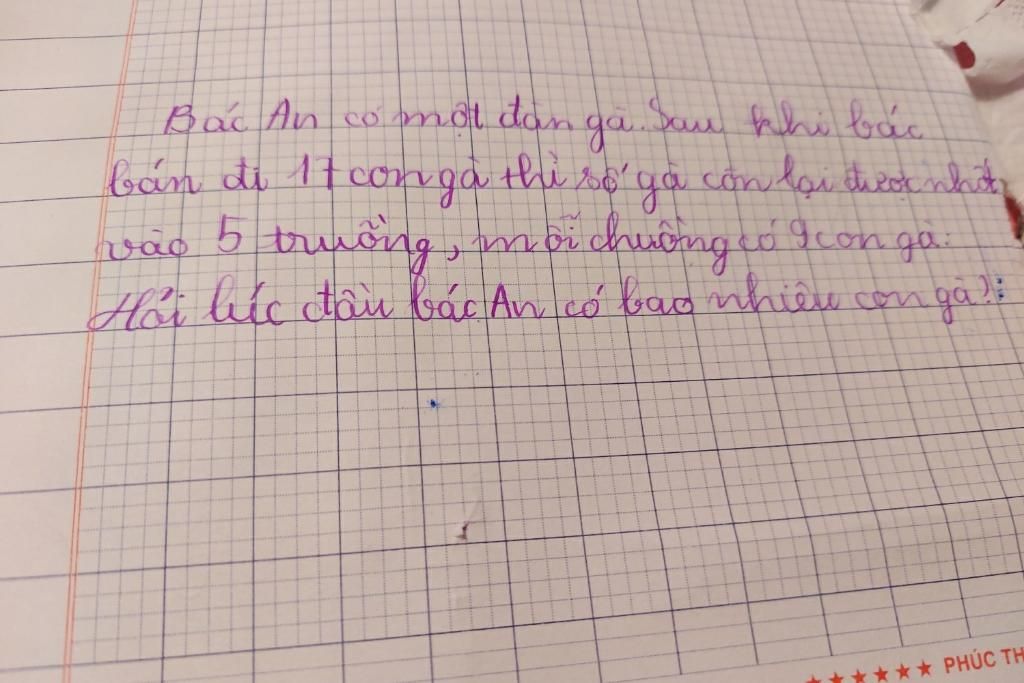 Bác An có một đàn gà. Sau khi bác
bán đi 17 con gà thì số gà còn lại được nhốt
vào 5 truồng, mỗi chuồng có 9 con gà.
Hỏi lúc đầu bác An có bao nhiêu con gà?
★★★★★★ PHÚC TH